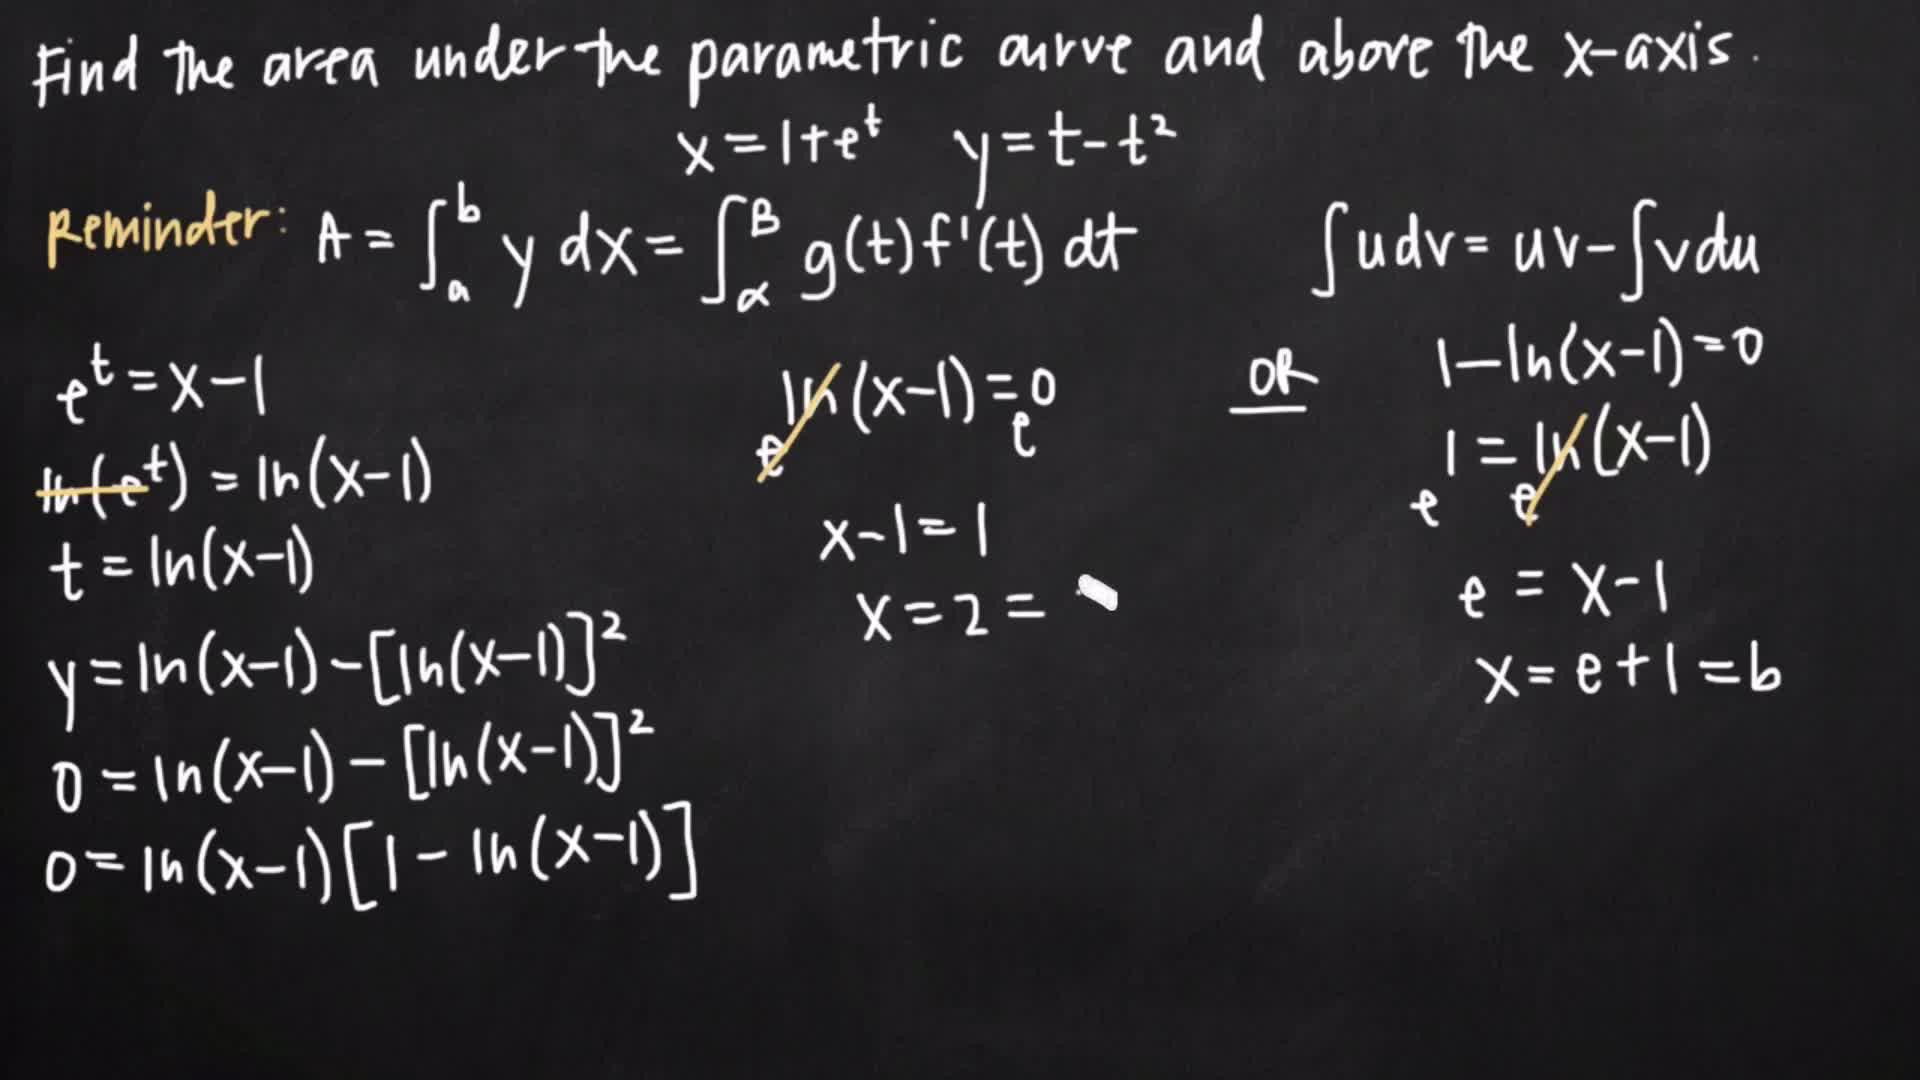 Find the area under the parametric curve and above the x-axis.
x = 1+e^t   y = t - t²
Reminder: A = ∫_a^b y dx = ∫_α^β g(t) f'(t) dt
∫ u dv = uv - ∫ v du
e^t = x - 1
ln(e^t) = ln(x-1)
t = ln(x-1)
y = ln(x-1) - [ln(x-1)]²
0 = ln(x-1) - [ln(x-1)]²
0 = ln(x-1)[1 - ln(x-1)]
e^ln(x-1) = e^0
x - 1 = 1
x = 2 =
OR
1 - ln(x-1) = 0
e^1 = e^ln(x-1)
e = x - 1
x = e + 1 = b